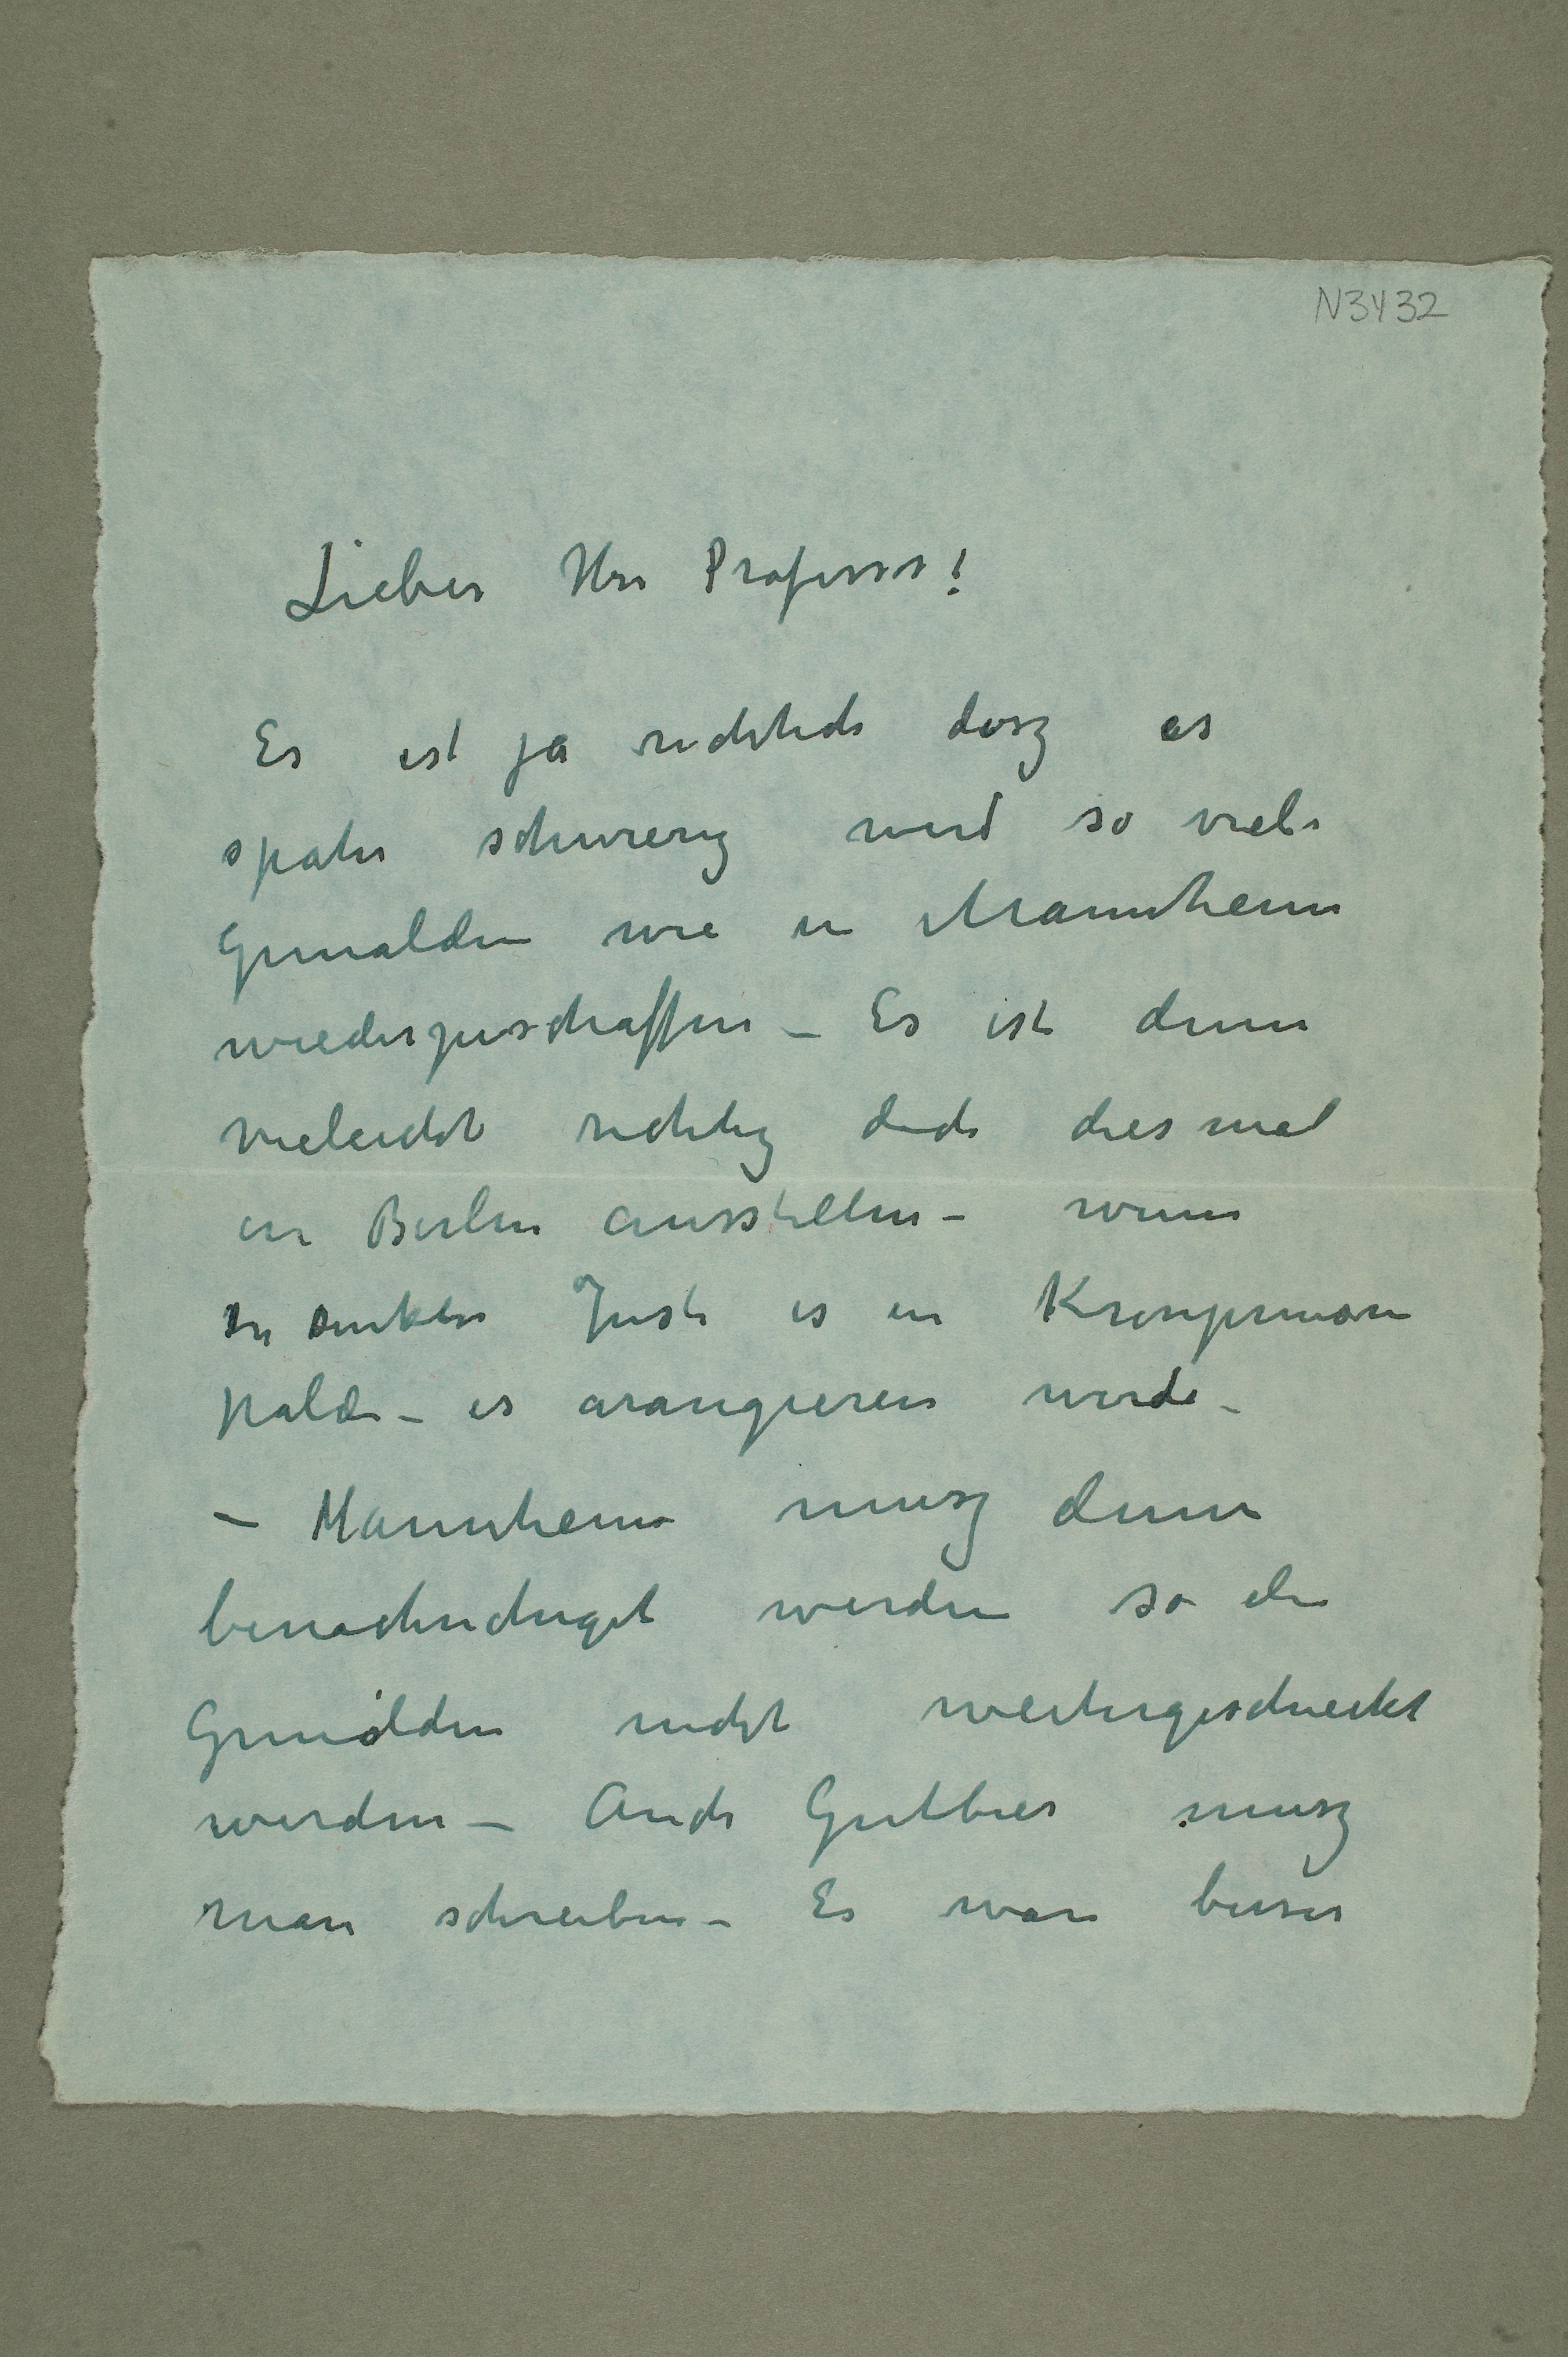 N3432
Lieber Herr Professor!
Es ist ja richtich dasz es
später schwierig wird so viele
Gemälden wie in Mannheim
wiederzuschaffen – Es ist denn
vieleicht richtig doch diesmal
in Berlin ausstellen – wenn
Direkter Justi es in Kronprinzen
palæ – es arangieren werde –
– Mannheim musz denn
benachrichtiget werden so die
Gemälden nicht weitergeschieckt
werden – Auch Gutbier musz
man schreiben – Es wäre besser